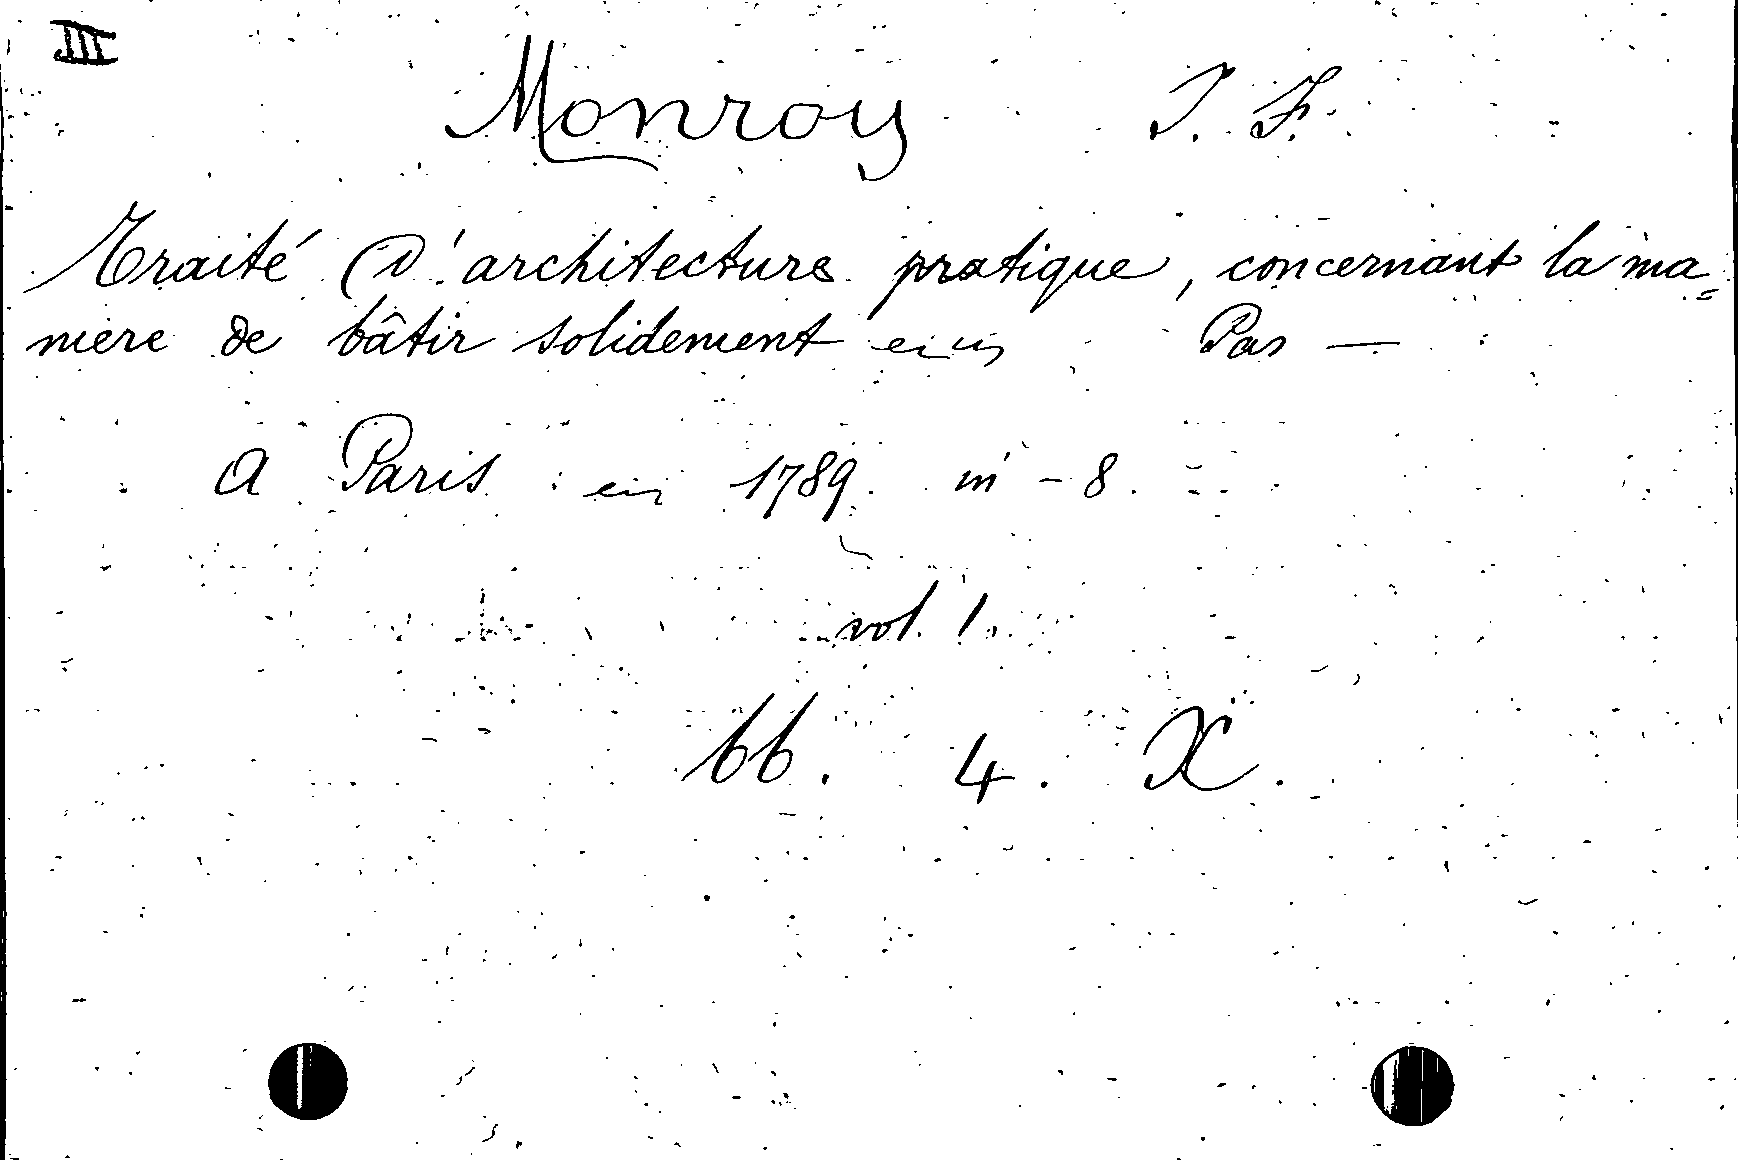 III
Monroy J. F.
Traité d'architecture pratique, concernant la ma=
niere de bâtir solidement Par —
A Paris en 1789 in - 8.
vol. 1.
bb. 4. X.